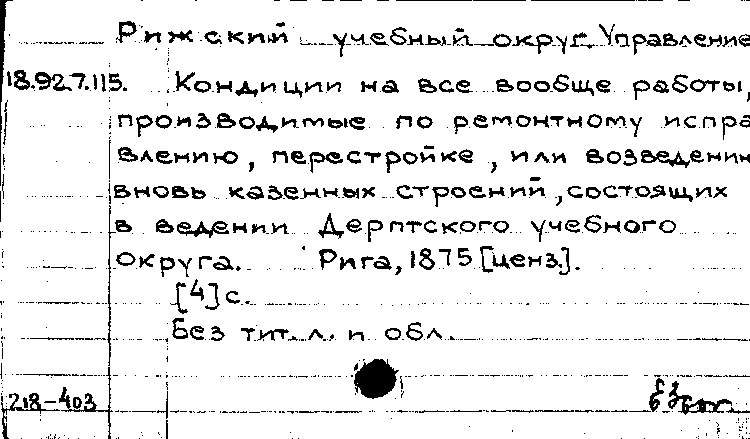 Рижский учебный округ. Управление
18.927.115. Кондиции на все вообще работы,
производимые по ремонтному испра
влению, перестройке, или возведению
вновь казенных строений, состоящих
в ведении Дерптского учебного
округа. Рига, 1875 [ценз.].
[4] с.
Без тит. л. и обл.
218-403